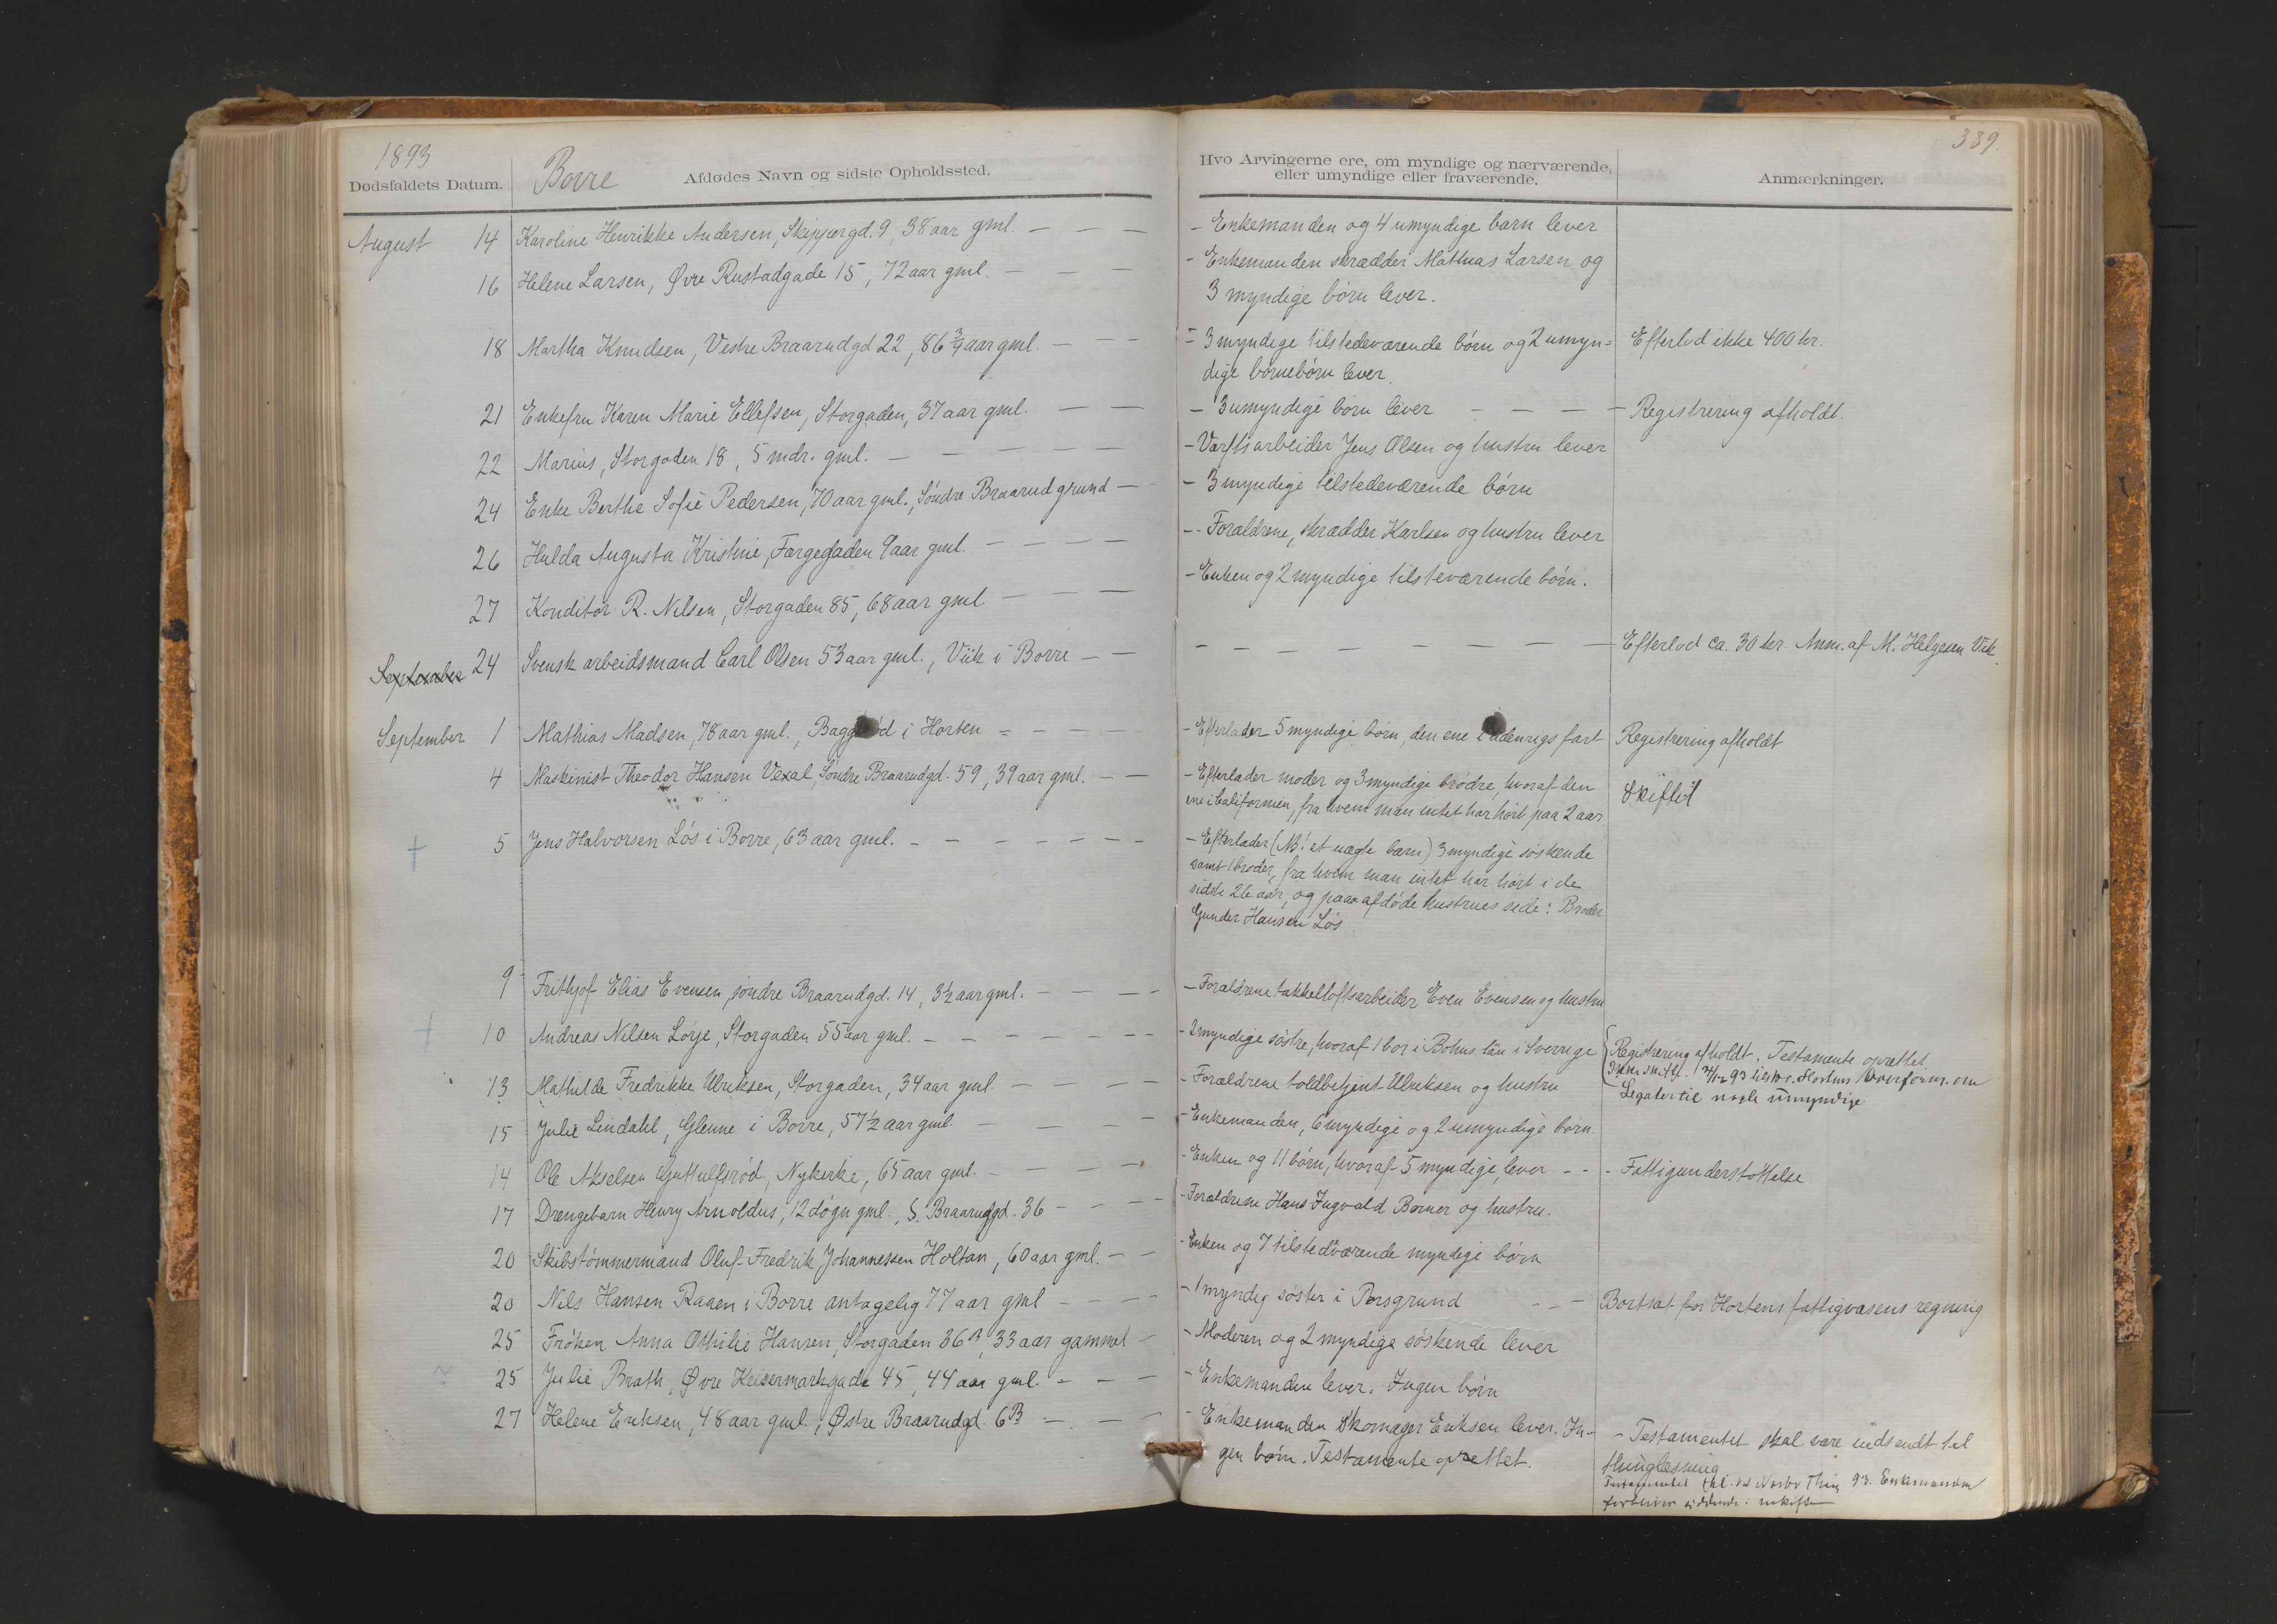 1893
339.
Dødsfaldets Datum.
Borre
Afdødes Navn og sidste Opholdssted.
Hvo Arvingerne ere, om myndige og nærværende, eller umyndige eller fraværende.
Anmærkninger.
August 14 Karoline Henrikke Andersen, Skippergd. 9, 38 aar gml. – – – – Enkemanden og 4 umyndige barn lever
16 Helene Larsen, Øvre Rustadgade 15, 72 aar gml. – – – – Enkemanden skrædder Mathias Larsen og
3 myndige børn lever.
18 Martha Knudsen, Vestre Braarudgd 22, 86 3/4 aar gml. – – – – 3 myndige tilstedeværende børn og 2 umyn= Efterlod ikke 400 kr.
dige børnebørn lever.
21 Enkefru Karen Marie Ellefsen, Storgaden, 37 aar gml. – – – 3 umyndige børn lever – – – – Registrering afholdt.
22 Marius, Storgaden 18, 5 mdr. gml. – – – – – – Værftsarbeider Jens Olsen og hustru lever
24 Enke Berthe Sofie Pedersen, 70 aar gml., Søndre Braarud grund – – 3 myndige tilstedeværende børn
26 Hulda Augusta Kristine, Færgegaden 9 aar gml. – – – – – Forældrene, skrædder Karlsen og hustru lever
27 Konditor R. Nilsen, Storgaden 85, 68 aar gml. – – – – Enken og 2 myndige tilsteværende børn.
September 24 Svensk arbeidsmand Carl Olsen 53 aar gml., Viik i Borre – – – – – – – – – – Efterlod ca. 30 kr. Anm. af M. Helgesen Vik.
September 1 Mathias Madsen, 78 aar gml., Baggerød i Horten – – – – – Efterlader 5 myndige børn, den ene i udenrigs fart Registrering afholdt
4 Maskinist Theodor Hansen Vexal, Søndre Braarudgd. 59, 39 aar gml. – – – Efterlader moder og 3 myndige brødre, hvoraf den Skiftet
ene i Californien, fra hvem man intet har hørt paa 2 aar
5 Jens Halvorsen Løs i Borre, 63 aar gml. – – – – – – – Efterlader (NB! et uægte barn) 3 myndige søskende
samt 1 broder, fra hvem man intet har hørt i de
sidste 26 aar, og paa afdøde hustrues side: Broder
Gunder Hansen Løs.
9 Frithjof Elias Evensen, søndre Braarudgd. 14, 3½ aar gml. – – – – – Forældrene takkelloftsarbeider Even Evensen og hustru
10 Andreas Nilsen Lorje, Storgaden 55 aar gml. – – – – – – – 2 myndige søstre, hvoraf 1 bor i Bohus län i Sverrige Registrering afholdt. Testamente oprettet.
13 Mathilde Fredrikke Ulriksen, Storgaden, 34 aar gml – – – – – Forældrene toldbetjent Ulriksen og hustru
93 Hortens Overform. om
Legater til nogle umyndige
15 Julie Lindahl, Glenne i Borre, 57½ aar gml. – – – – – Enkemanden, 6 myndige og 2 umyndige børn.
14 Ole Akselsen Guttulfsrød, Nykirke, 65 aar gml. – – – – – Enken og 11 børn, hvoraf 5 myndige, lever – – – Fattigunderstøttelse
17 Drengebarn Henry Arnoldus, 12 døgn gml., S. Braarudgd. 36 – – – – – Forældrene Hans Ingvald Berner og hustru.
20 Skibstømmermand Oluf Fredrik Johannessen Holtan, 60 aar gml. – – – Enken og 7 tilstedværende myndige børn
20 Nils Hansen Raaen i Borre antagelig 77 aar gml – – – – – 1 myndig søster i Porsgrund – – – Bortsat for Hortens fattigvæsens regning
25 Frøken Anna Othilie Hansen, Storgaden 36 B, 33 aar gammel – – Moderen og 2 myndige søskende lever
25 Julie Brath, Øvre Keisermarkgade 45, 44 aar gml. – – – – Enkemanden lever. Ingen børn
27 Helene Eriksen, 48 aar gml., Østre Braarudgd. 6 B – – – – Enkemanden Skomager Eriksen lever. In- – Testamentet skal være indsendt til
gen børn. Testamente oprettet. thinglæsning
Testamentet Thing 93. Enkemanden